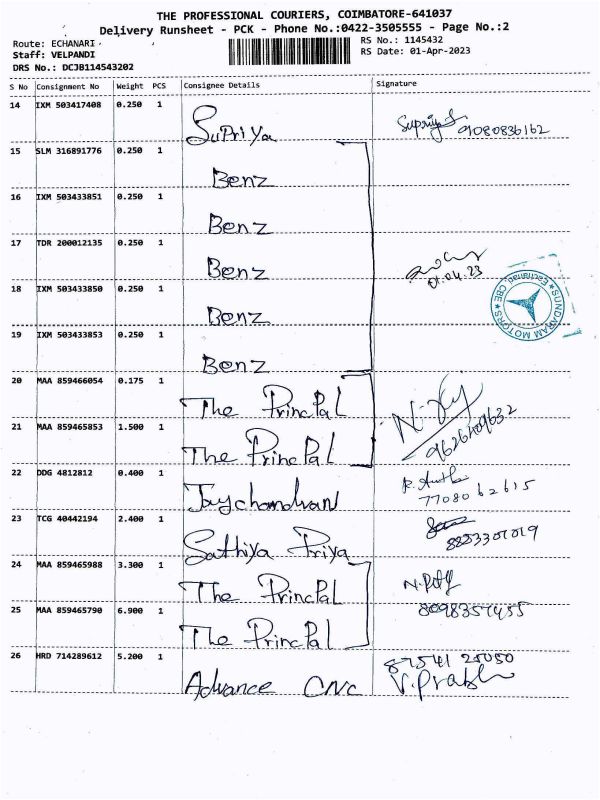 THE PROFESSIONAL COURIERS, COIMBATORE-641037
Delivery Runsheet - PCK - Phone No.:0422-3505555 - Page No.:2
Route: ECHANARI RS No.: 1145432
Staff: VELPANDI RS Date: 01-Apr-2023
DRS No.: DCJB114543202
S No Consignment No Weight PCS Consignee Details Signature
14 IXM 503417408 0.250 1
Supriya Supriya 9080836162
15 SLM 316891776 0.250 1
Benz
16 IXM 503433851 0.250 1
Benz
17 TDR 200012135 0.250 1
Benz 01.04.23
18 IXM 503433850 0.250 1
Benz
SUNDARAM MOTORS Eachanari, CBE
19 IXM 503433853 0.250 1
Benz
20 MAA 859466054 0.175 1
The PrincPal
21 MAA 859465853 1.500 1
The PrincPal
22 DDG 4812812 0.400 1
Jaychandran 7708062615
23 TCG 40442194 2.400 1
Sathiya Priya 8853301019
24 MAA 859465988 3.300 1
The PrincPal
25 MAA 859465790 6.900 1 8098357455
The PrincPal
26 HRD 714289612 5.200 1 87541 25050
Advance CNC V.Prabh